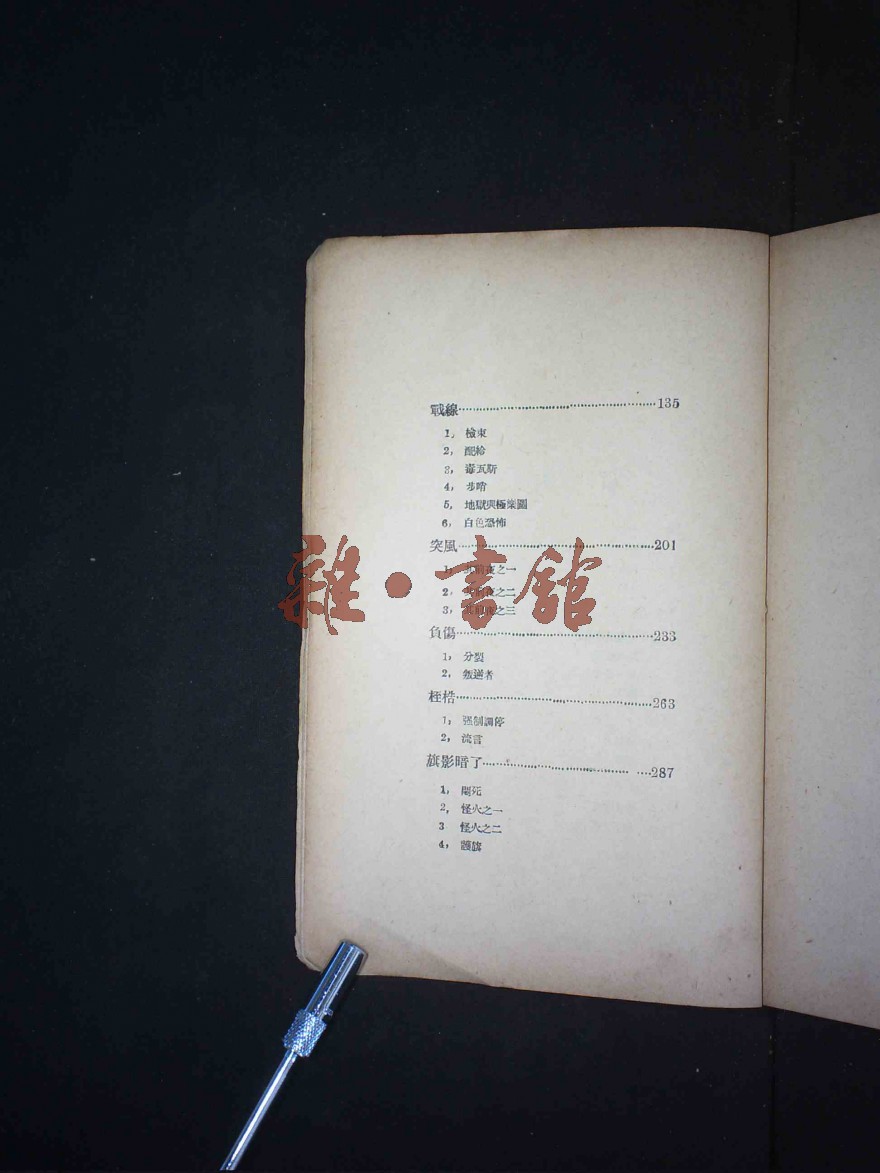 戰線……………………………135
1, 檢束
2, 配給
3, 毒瓦斯
4, 步哨
5, 地獄與極樂圖
6, 白色恐怖
突風……………………………201
1, 其前夜之一
2, 其前夜之二
3, 其前夜之三
負傷……………………………233
1, 分裂
2, 叛逆者
桎梏……………………………263
1, 強制調停
2, 流言
旗影暗了……………………………287
1, 悶死
2, 怪火之一
3 怪火之二
4, 護旗
雜·書舘